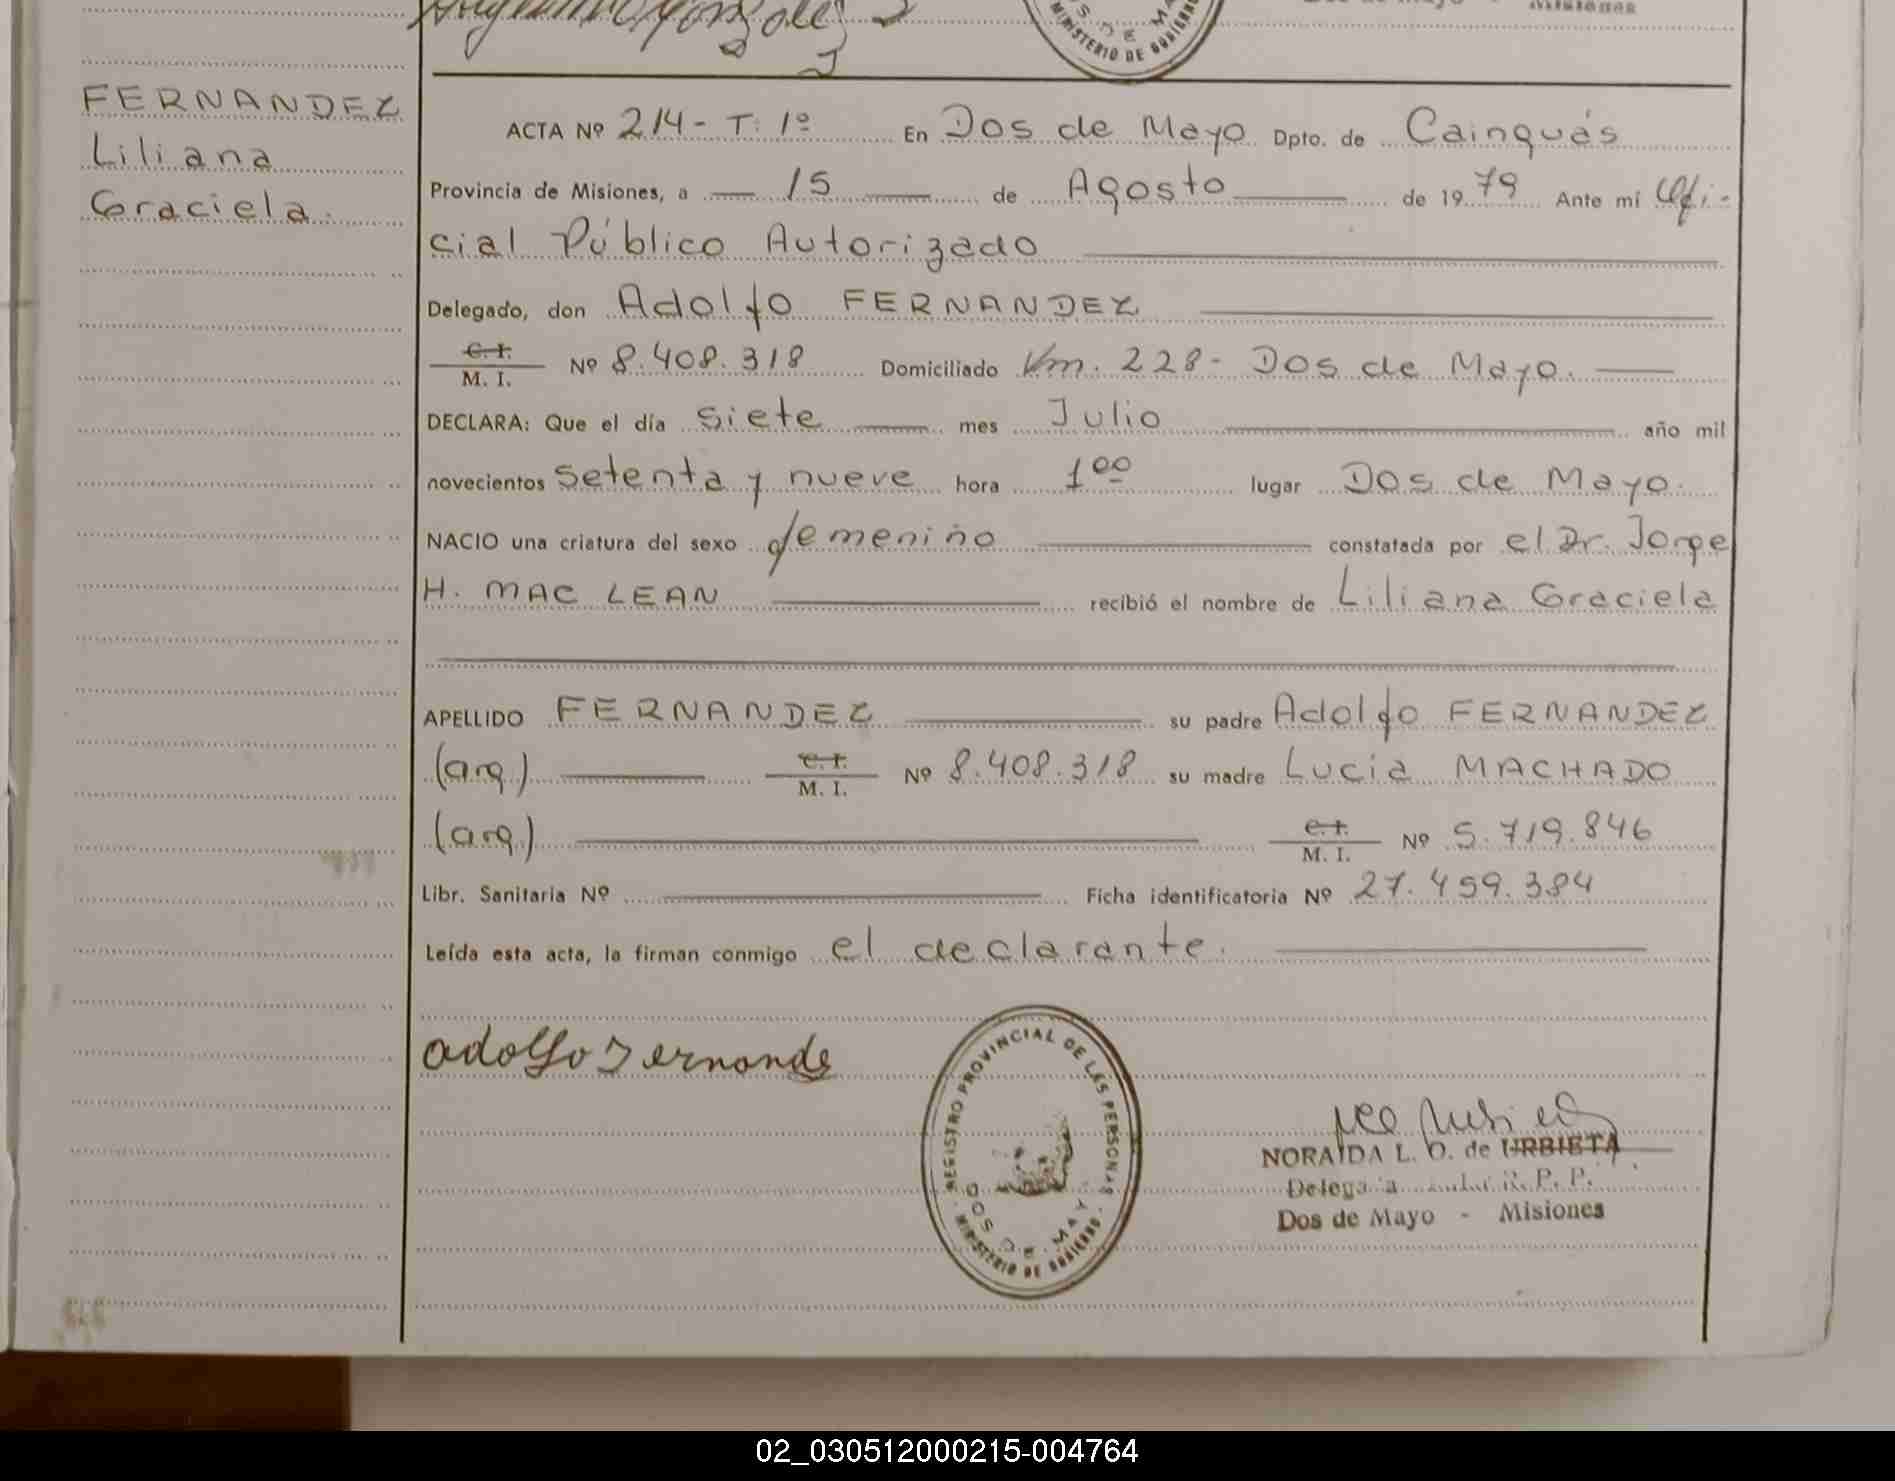 Misiones
MINISTERIO DE GOBIERNO
FERNANDEZ
Liliana
Graciela.
ACTA Nº 214- T: 1º En Dos de Mayo Dpto. de Cainguás
Provincia de Misiones, a 15 de Agosto de 1979 Ante mí Ofi-
cial Público Autorizado
Delegado, don Adolfo FERNANDEZ
C. I. / M. I. Nº 8.408.318 Domiciliado Km. 228- Dos de Mayo.
DECLARA: Que el día siete mes Julio año mil
novecientos setenta y nueve hora 1ºº lugar Dos de Mayo.
NACIO una criatura del sexo femenino constatada por el Dr. Jorge
H. MAC LEAN recibió el nombre de Liliana Graciela
APELLIDO FERNANDEZ su padre Adolfo FERNANDEZ
(arg.) C. I. / M. I. Nº 8.408.318 su madre Lucia MACHADO
(arg.) C. I. / M. I. Nº 5.719.846
Libr. Sanitaria Nº Ficha identificatoria Nº 27.459.384
Leída esta acta, la firman conmigo el declarante.
adolfo Fernande
REGISTRO PROVINCIAL DE LAS PERSONAS
DOS DE MAYO
MINISTERIO DE GOBIERNO
NORAIDA L. O. de URBIETA
Delegada R. P. P.
Dos de Mayo - Misiones
02_030512000215-004764